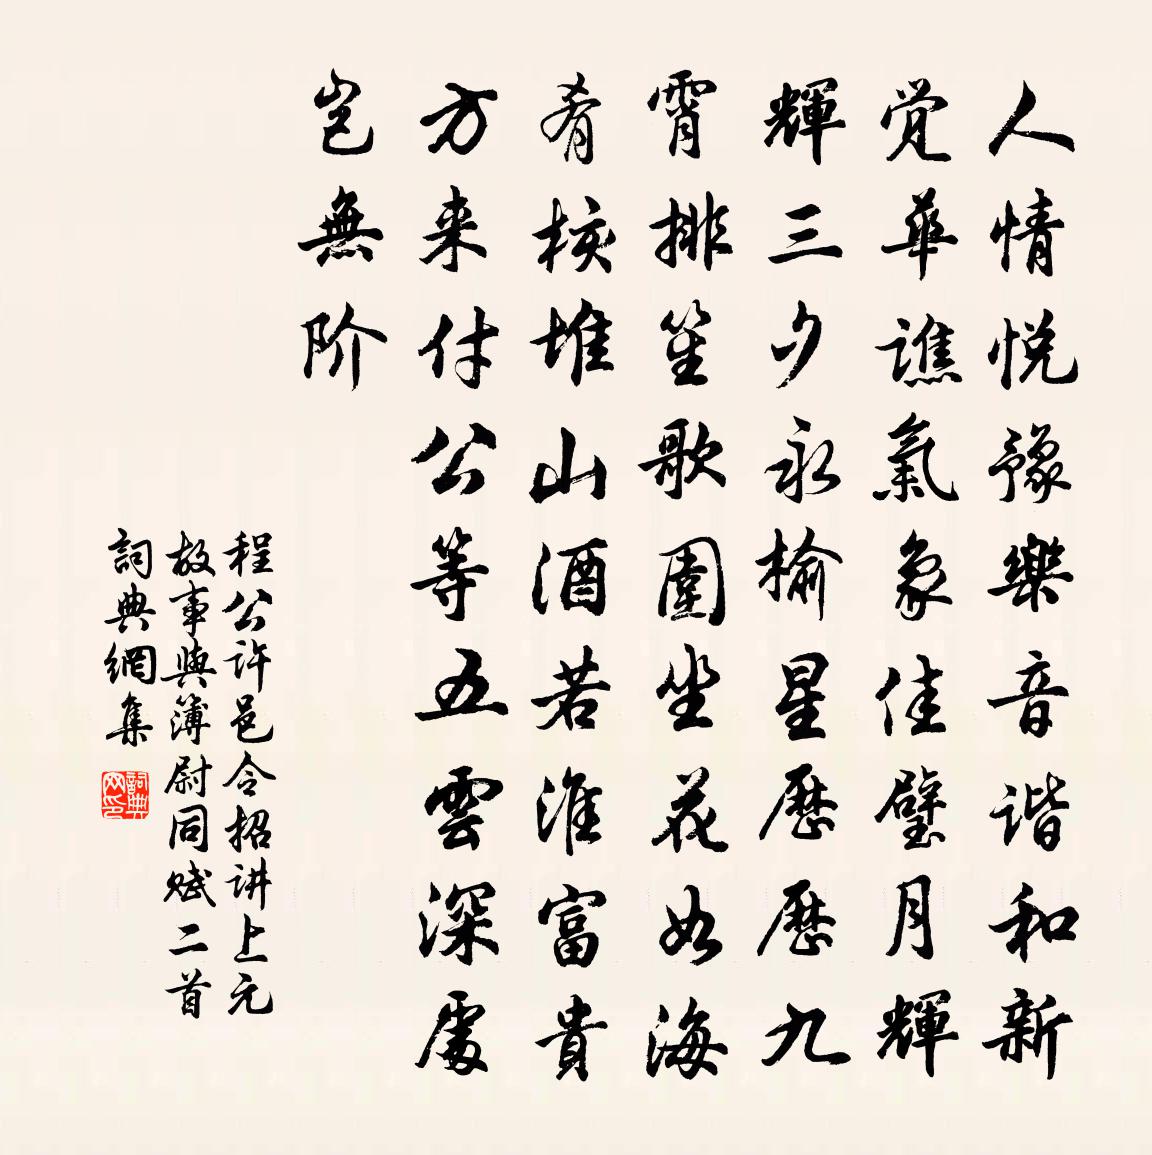 人情悦豫樂音谐和新
觉華譙氣象佳璧月輝
輝三夕永榆星歷歷九
霄排笙歌圍坐花如海
肴核堆山酒若淮富貴
方来付公等五雲深處
岂無阶
程公许邑令招讲上元
故事與簿尉同赋二首
詞典網集
詞典网印